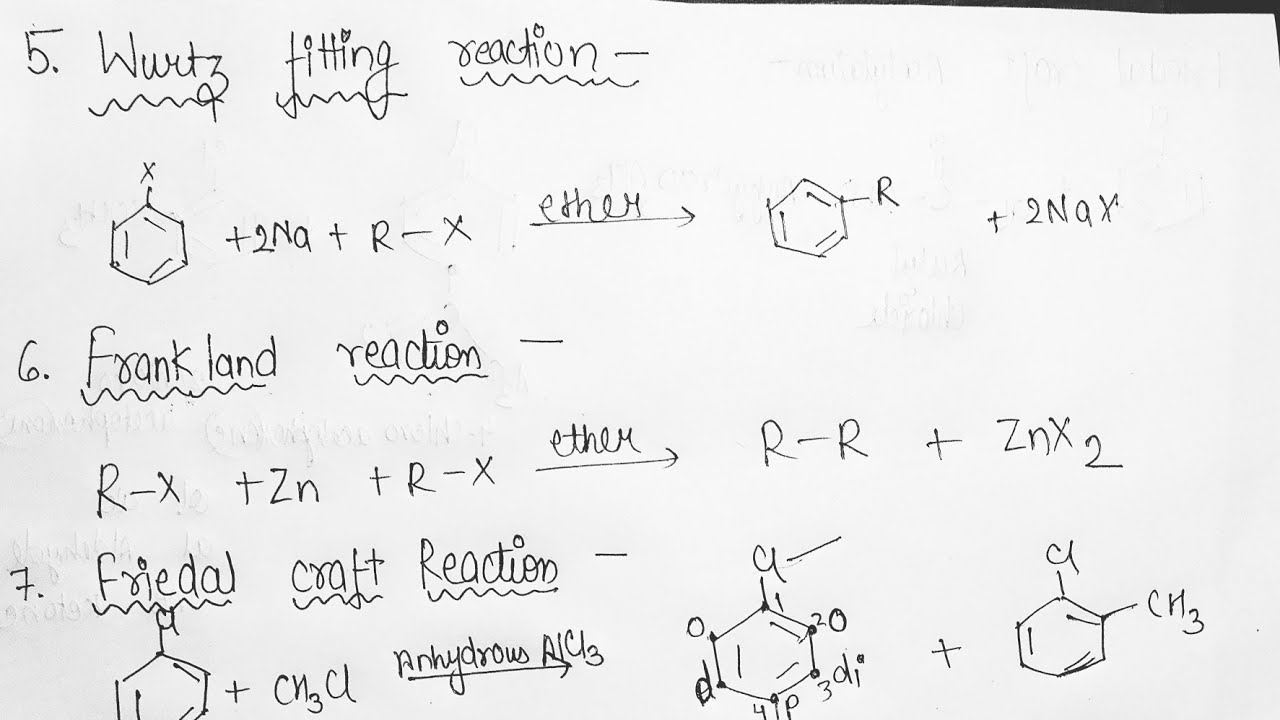 5. Wurtz fitting reaction –
X
+2Na + R–X ether → R + 2NaX
6. Frankland reaction –
R–X +Zn + R–X ether → R–R + ZnX2
7. Friedal craft Reaction –
Cl Cl 1 Cl
O 2O CH3
+ CH3Cl Anhydrous AlCl3 → +
d 3di
4 P